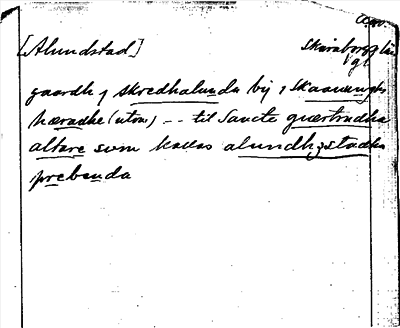 [Alundstad] Skaraborgs län
gaardh j skredhalunda by j Skaanungs
hæradhe (utom) -- til Sancte giærtrudha
altare som kallas alundhzstadha
prebenda